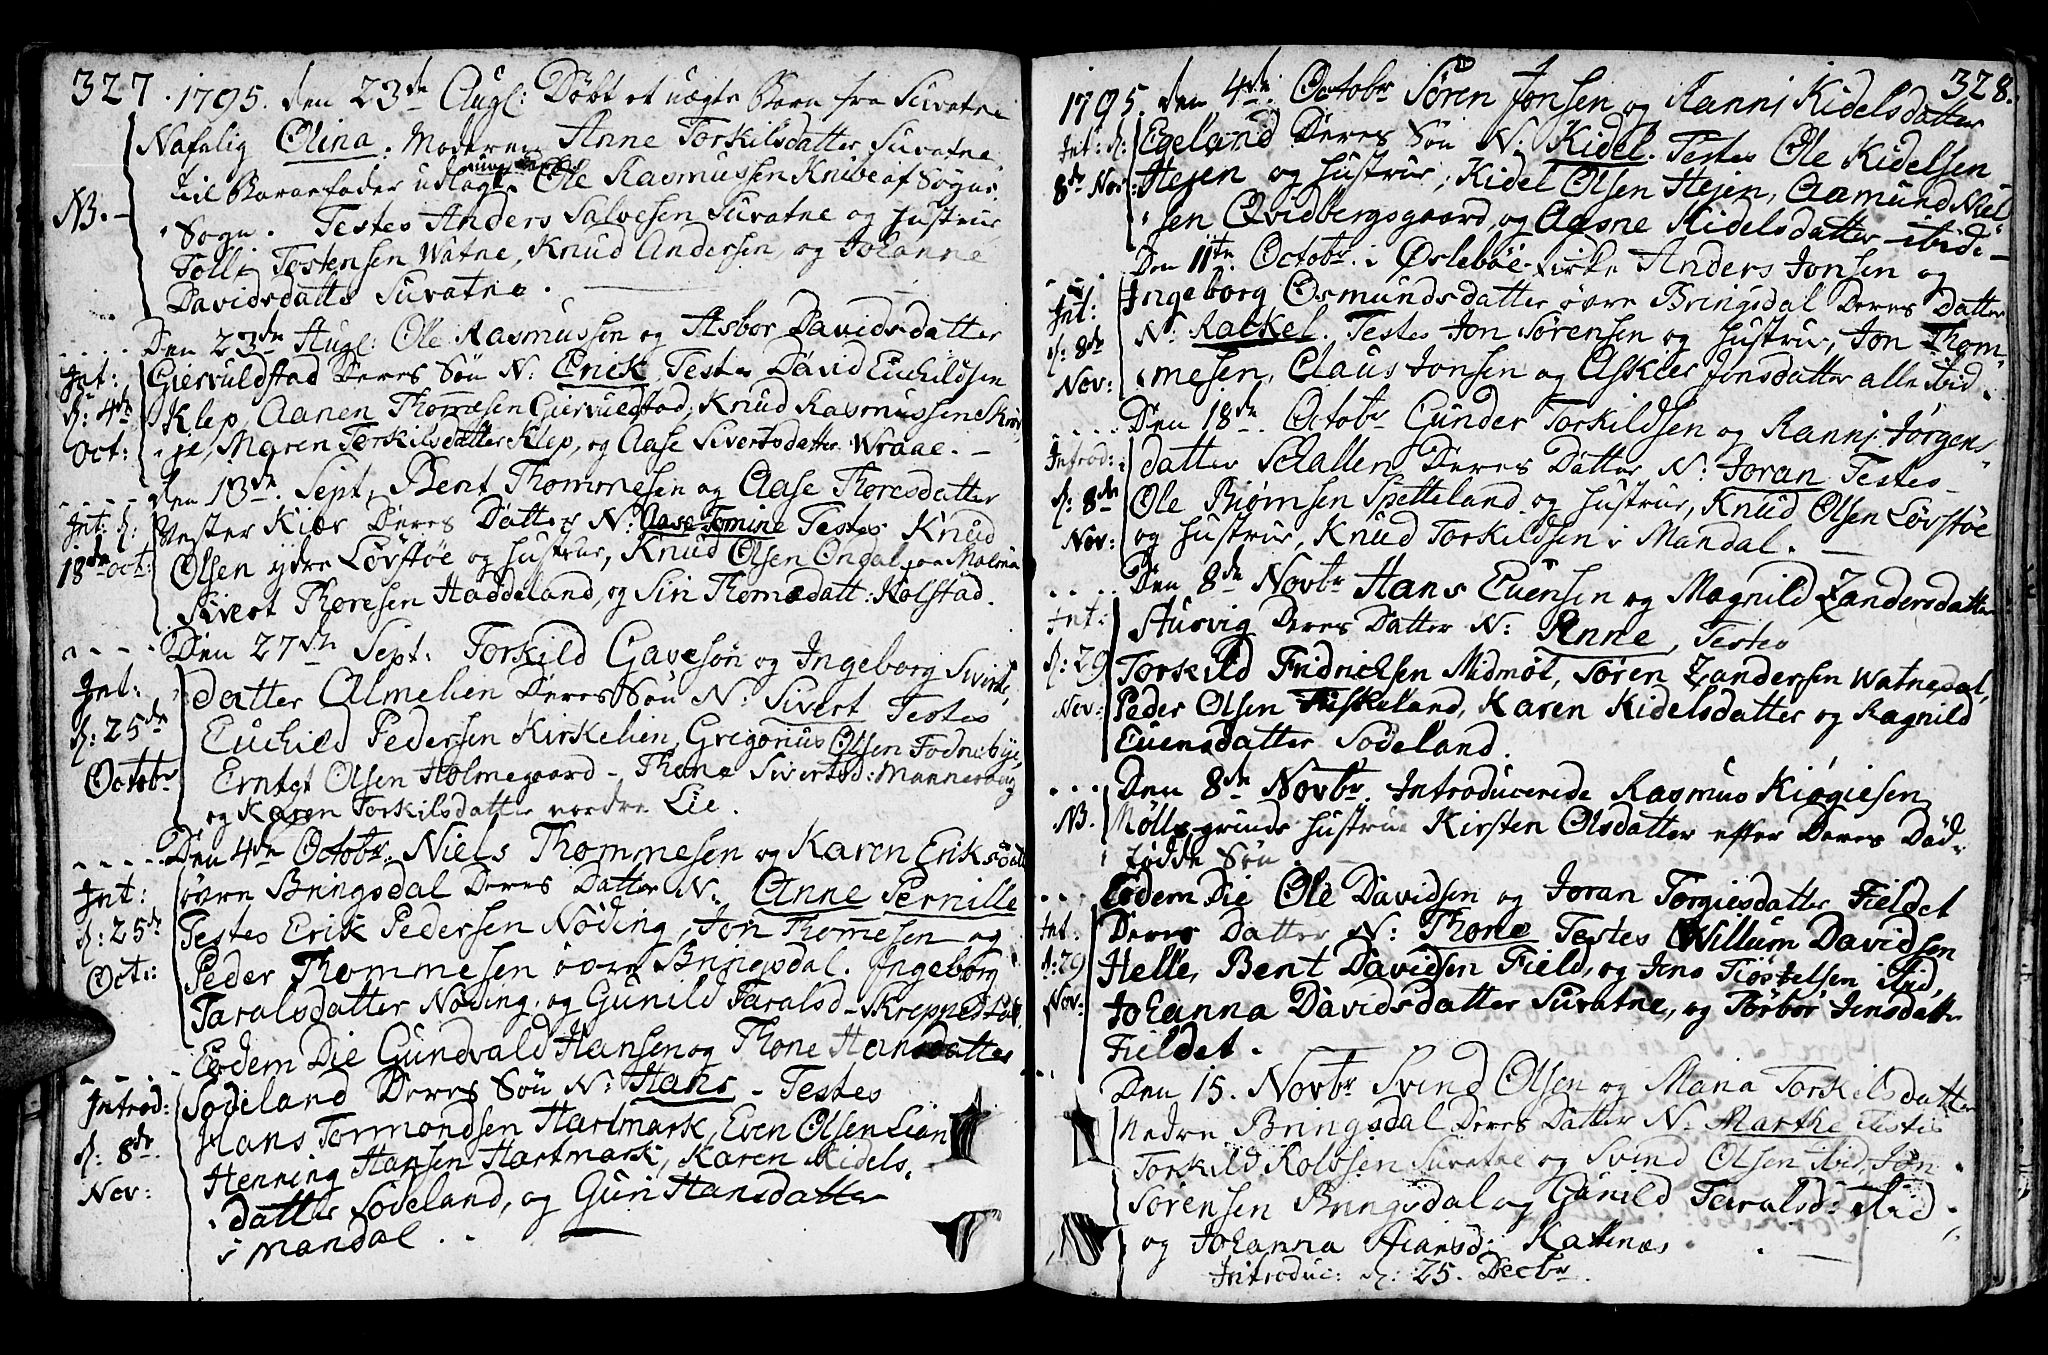 327. 1795. den 23de Augl: Döbt et uægte Barn fra Suvatne
Nafnlig Olina. Moderen Anne Torkilsdatter Suvatne
til Barnefader udlagt Ole Rasmussen Knibe af Søgne
NB. Sogn. Testes Anders Salvesen Suvatne og Hustrue
Tolli Tostensen Watne, Knud Andersen, og Johanna
Davidsdatter Suvatne.
Den 23de Augl: Ole Rasmussen og Asbor Davidsdatter
Int: Giervuldstad Deres Sön N: Erick Testes David Euchildsen
d: 4de Klep, Aanen Thomesen Giervuldstad, Knud Rasmussen
Oct: je, Maren Torkilsdatter Klep, og Aase Sivertsdatter Wraae.
den 13de Sept, Bent Thommesen og Aase Thoresdatter
Int: d: Vester Kiær Deres Datter N: Aase Tomine Testes Knud
18de Oct: Olsen ydre Lövstöe og Hustrue, Knud Olsen
Sivert Thoresen Haddeland, og Siri Thomædatt: Holstad.
Den 27de Sept: Torkild Gavesön og Ingeborg Sivirts
Int: datter Almelien Deres Sön N: Sivert Testes
d: 25de Euchild Pedersen Kirkelien, Gregorius Olsen Fodnebye,
Octobr Erntgt Olsen Holmegaard, Thone Sivertsd:
og Karen Torkilsdatter nordre Lie.
Den 4de Octobr. Niels Thommesen og Karen Eriksdatt
Int: övre Bringsdal Deres Datter N: Anne Pernille
d: 25de Testes Erik Pedersen Nöding, Jon Thomesen og
Oct: Peder Thommesen övre Bringsdal. Ingeborg
Taralsdatter Nöding, og Gunild Taralsd Skreppedstad
Eodem Die Gundvald Hansen og Thone Hansdatter
Introd: Sodeland Deres Sön N: Hans. Testes
d: 8de Hans Tormondsen Hartmark, Even Olsen Lian
Nov: Henning Hansen Hartmark, Karen Kidels
datter Sodeland, og Guri Hansdatter
i Mandal.
328.
1795. den 4de Octobr Sören Jonsen og Ranni Kidelsdatter
Int: d: Egeland Deres Sön N: Kidel. Testes Ole Kidelsen
8de Nov: Hejen og Hustrue, Kidel Olsen Hejen, Aamund Niel
sen Qvidbergsgaard, og Aasne Kidelsdatter ibid:
Den 11te Octobr. i Øslebøe Kirke Anders Jonsen og
Int: Ingeborg Osmundsdatter övre Bringsdal Deres Datter
d: 8de N: Rackel. Testes Jon Sörensen og Hustrue, Jon Thom
Nov: mesen, Claus Jonsen og Askier Jonsdatter alle ibid.
Den 18de Octobr Gunder Torkildsen og Ranni Jörgens
Introd: datter Schallen Deres Datter N: Joran Testes
d: 8de Ole Biörnsen Spetteland og Hustrue, Knud Olsen Lövstöe
Nov: og Hustrue, Knud Torkildsen i Mandal.
Den 8de Novbr Hans Evensen og Magnild Zandersdatter
Int: Stusvig Deres Datter N: Anne, Testes
d: 29 Torkild Fridrichsen Midmöt, Sören Zandersen Watnedal,
Nov: Peder Olsen Fiskeland, Karen Kidelsdatter og Ragnild
Evensdatter Sodeland.
Den 8de Novbr. Introducerede Rasmus Kiögiesen
NB. Möllegrinds Hustrue Kirsten Olsdatter efter Deres Död
födde Sön.
Eodem Die Ole Davidsen og Joran Torgiesdatter Fieldet
Int: Deres Datter N: Thone Testes Willum Davidsen
d: 29 Helle, Bent Davidsen Field, og Jens Tiöstelsen ibid,
Nov: Johanna Davidsdatter Suvatne, og Torbor Jensdatter
Fieldet.
Den 15. Novbr Svind Olsen og Maria Torkelsdatter
Nedre Bringsdal Deres Datter N: Marthe Testes
Torkild Rolvsen Suvatne og Svind Olsen ibid, Jon
Sörensen Bringsdal og Gunild Taralsd: ibid
og Johanna Kattenæs.
Introduc: d: 25. Decbr.